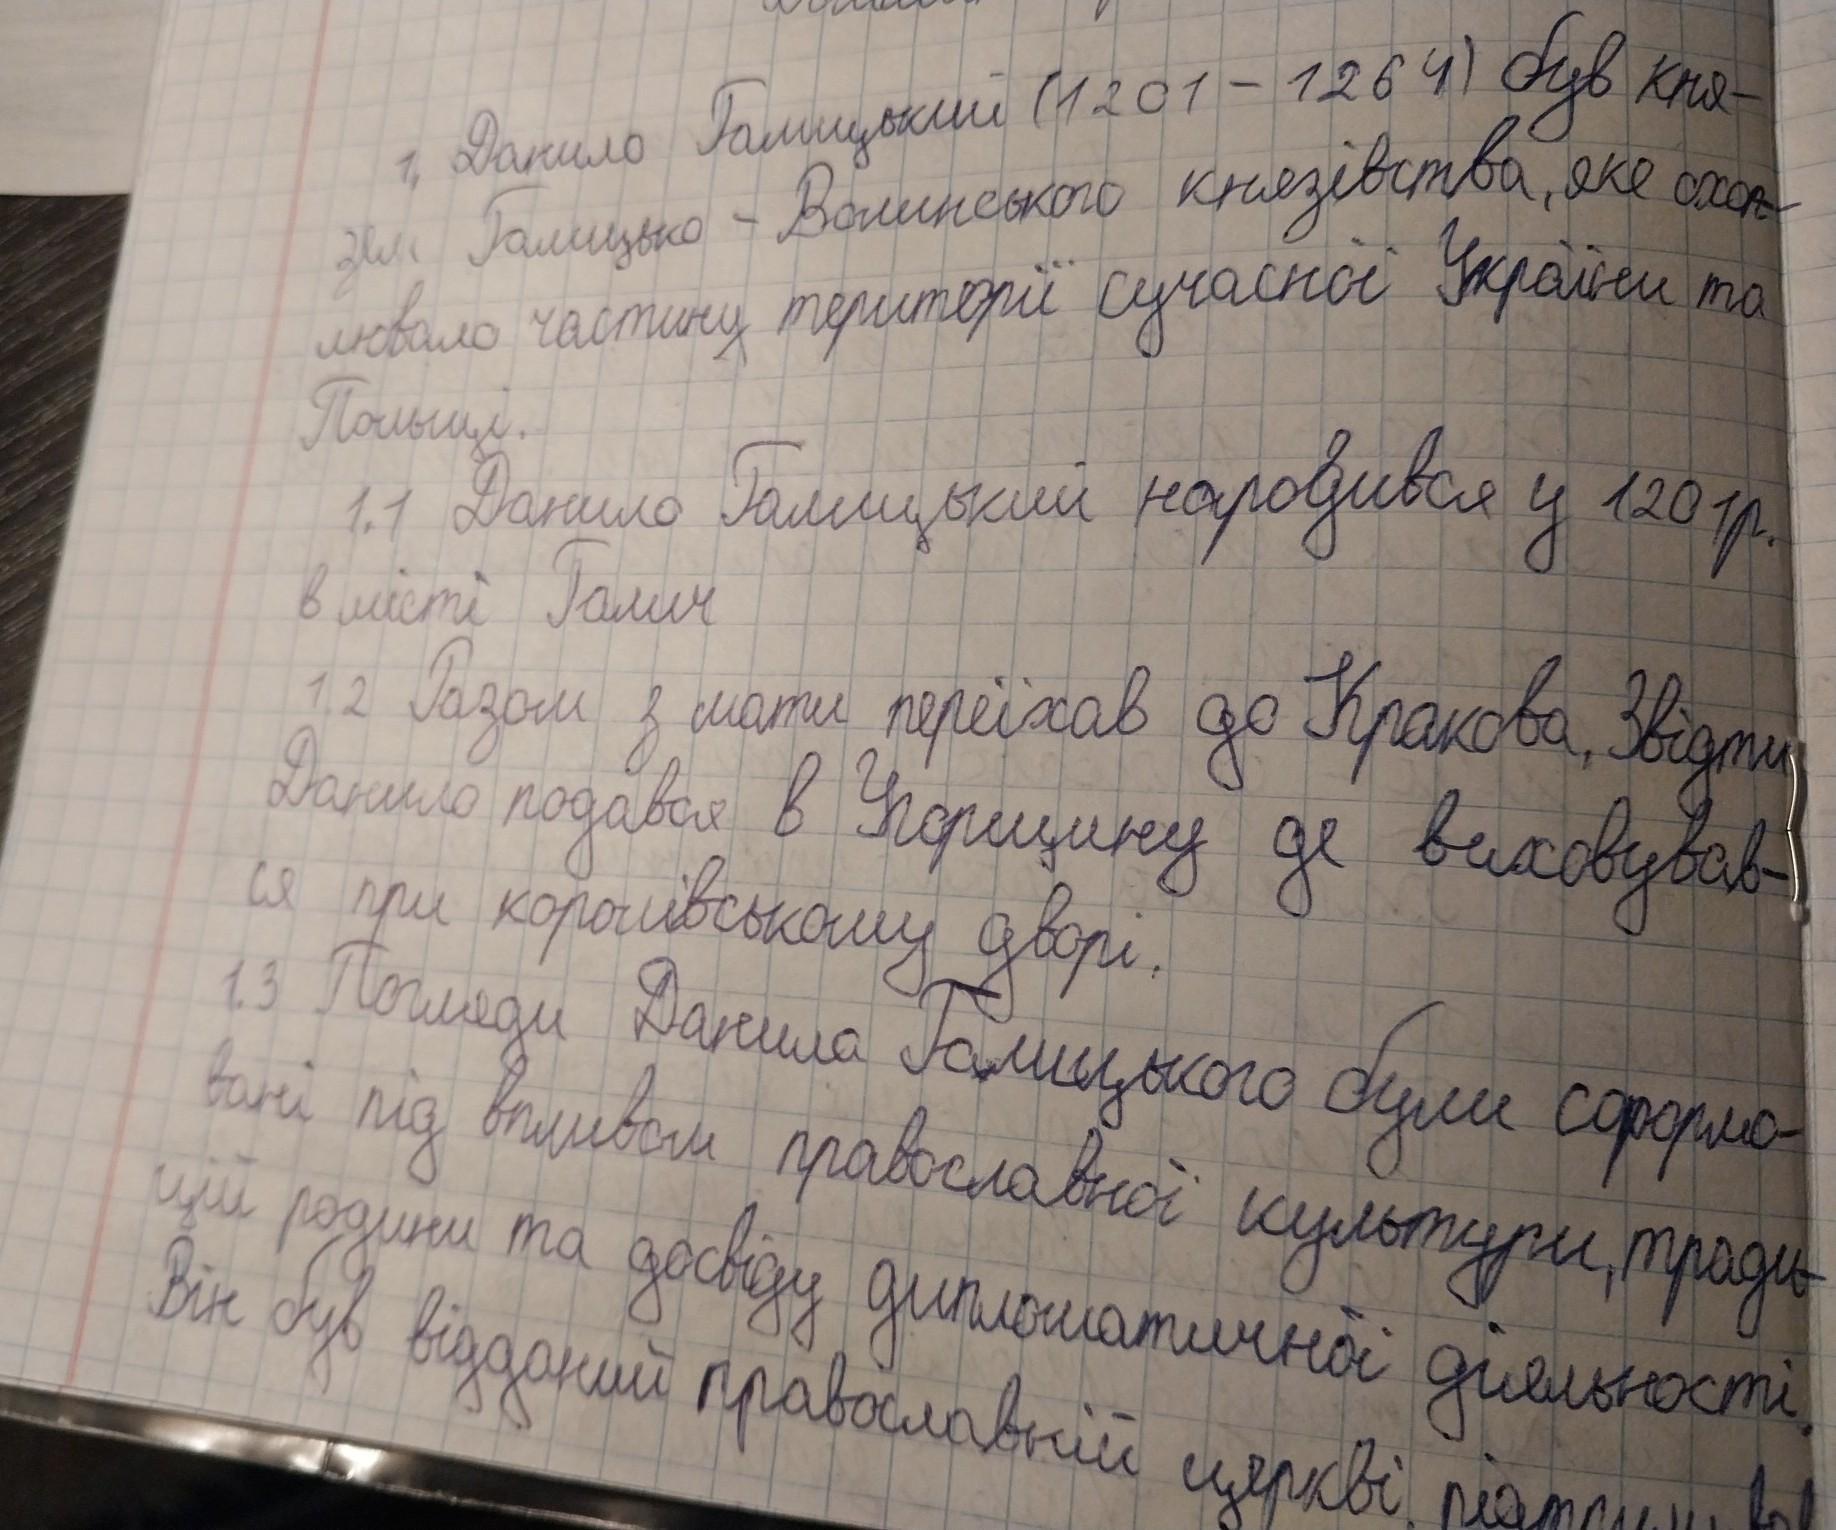 1. Данило Галицький (1201 – 1264) був кня-
зем Галицько – Волинського князівства, яке охоп-
лювало частину території сучасної України та
Польщі.
1.1 Данило Галицький народився у 1201р.
в місті Галич
1.2 Разом з мати переїхав до Кракова, Звідти
Данило подався в Угорщину де виховував-
ся при королівському дворі.
1.3 Погляди Данила Галицького були сформо-
вані під впливом православної культури, тради-
цій родини та досвіду дипломатичної діяльності.
Він був відданий православній церкві,